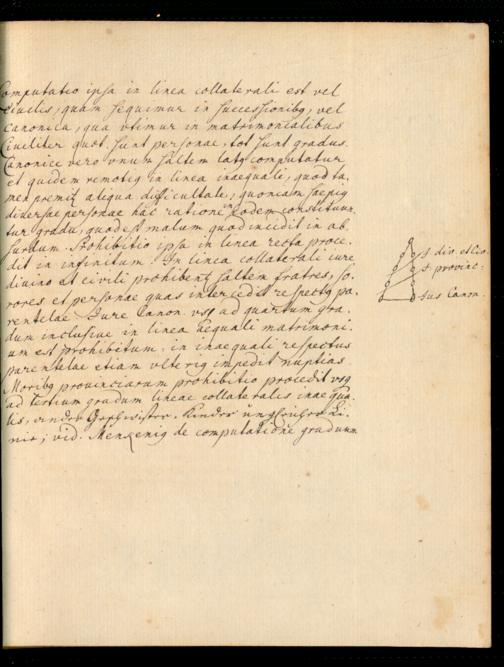 Computatio ipsa in linea collaterali est vel
civilis, quam sequimur in successionibq, vel
canonica, qua vtimur in matrimonialibus
Civiliter quot sunt personae, tot sunt gradus.
Canonice vero vnum saltem latq computatur
et quidem remotiq in linea inaequali, quod ta,
men premit aliqua difficultate, quoniam saepiq
diversae personae hac ratione in eodem constituun,
tur gradu, quod est malum quod incidit in ab,
surdum. Prohibitio ipsa in linea recta proce,
dit in infinitum. In linea collaterali iure
divino et civili prohibent saltem fratres, so,
rores et personae quas intercedit respectq pa,
rentelae Iure Canon. vsq ad quartum gra,
dum inclusive in linea aequali matrimoni,
um est prohibitum, in inaequali respectus
parentelae etiam vlteriq impedit nuptias
Moribq provinciarum prohibitio procedit vsq
ad tertium gradum lineae collateralis inaequa,
lis, Geschwister, Kinder
nis; vid. de computatione graduum
s. div. et civ.
s. provinc:
Ius Canon.